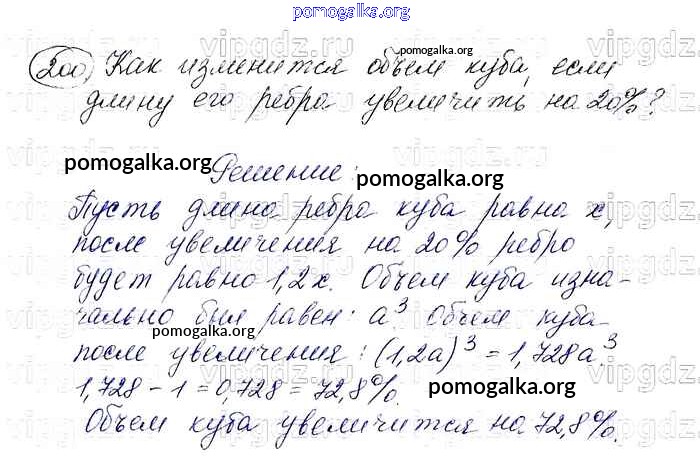 pomogalka.org
200) Как изменится объём куба, если
pomogalka.org
длину его ребра увеличить на 20%?
pomogalka.org
Решение:
pomogalka.org
Пусть длина ребра куба равна x,
после увеличения на 20% ребро
будет равно 1,2x. Объем куба изна-
чально был равен: a³ Объем куба
pomogalka.org
после увеличения: (1,2a)³ = 1,728a³
1,728 - 1 = 0,728 = 72,8%.
pomogalka.org
Объем куба увеличится на 72,8%.